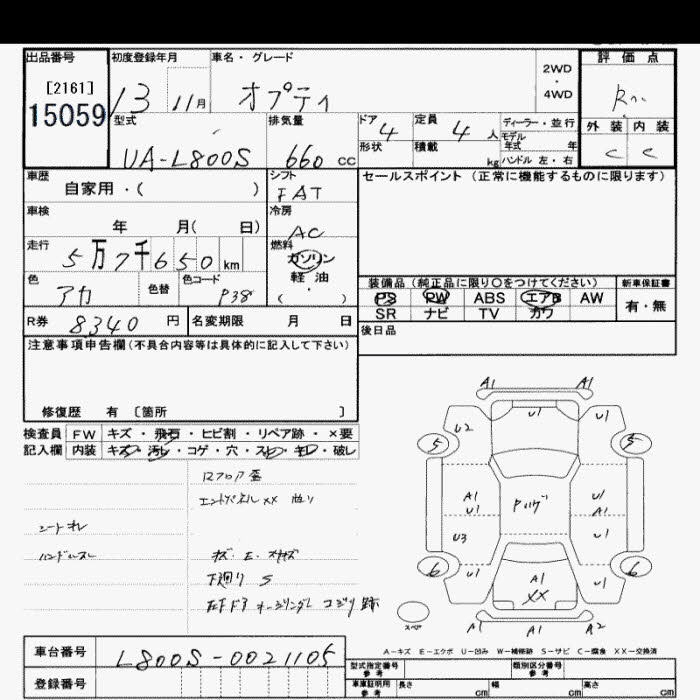 出品番号 初度登録年月 車名・グレード 評価点
[2161] 2WD
15059 13 11月 オプティ ・ R
4WD
型式 排気量 ドア 4 定員 4人 ディーラー・並行 外装 内装
UA-L800S 660 CC 形状 積載 kg モデル年式 年 C C
ハンドル 左・右
車歴 シフト セールスポイント (正常に機能するものに限ります)
自家用・( ) FAT
車検 冷房
年 月( 日) AC
走行 5万7千650km 燃料
ガソリン
色 色替 色コード 軽油
アカ P38 ・
( )
装備品 (純正品に限り○をつけてください) 新車保証書
PS PW ABS エアB AW 有・無
SR ナビ TV カワ
R券 8340 円 名変期限 月 日
後日品
注意事項申告欄(不具合内容等は具体的に記入して下さい)
修復歴 有 [箇所 ]
検査員 FW キズ・飛石・ヒビ割・リペア跡・×要
記入欄 内装 キズ・汚レ・コゲ・穴・スレ・キレ・破し
Rフロア歪
エンドパネルXX 曲り
シートキレ
ハンドルスレ キズ・E・
下廻り S
A1 A1
U1 U1
U2
5 5
A1 U1
U1 A1
U3 U1
6 6
U1 A1 U1
XX
スペア
A1 A1 A2
A-キズ E-エクボ U-凹み W-補修跡 S-サビ C-腐食 XX-交換済
車台番号 L800S-0021105
型式指定番号 参考 類別区分番号 参考
登録番号
車庫証明用 参考 長さ cm 幅 cm 高さ cm